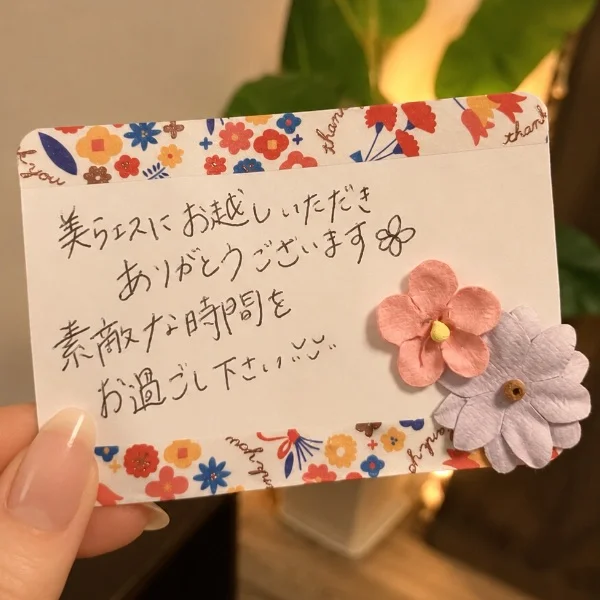 k you
thank
thank
美らエスにお越しいただき
ありがとうございます
素敵な時間を
お過ごし下さい
thank you